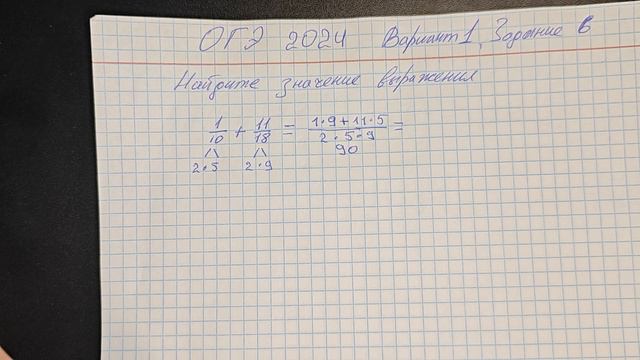 ОГЭ 2024 Вариант 1, Задание 6
Найдите значение выражения
1/10 + 11/18 = (1·9+11·5)/(2·5·9) =
2·5 2·9 90